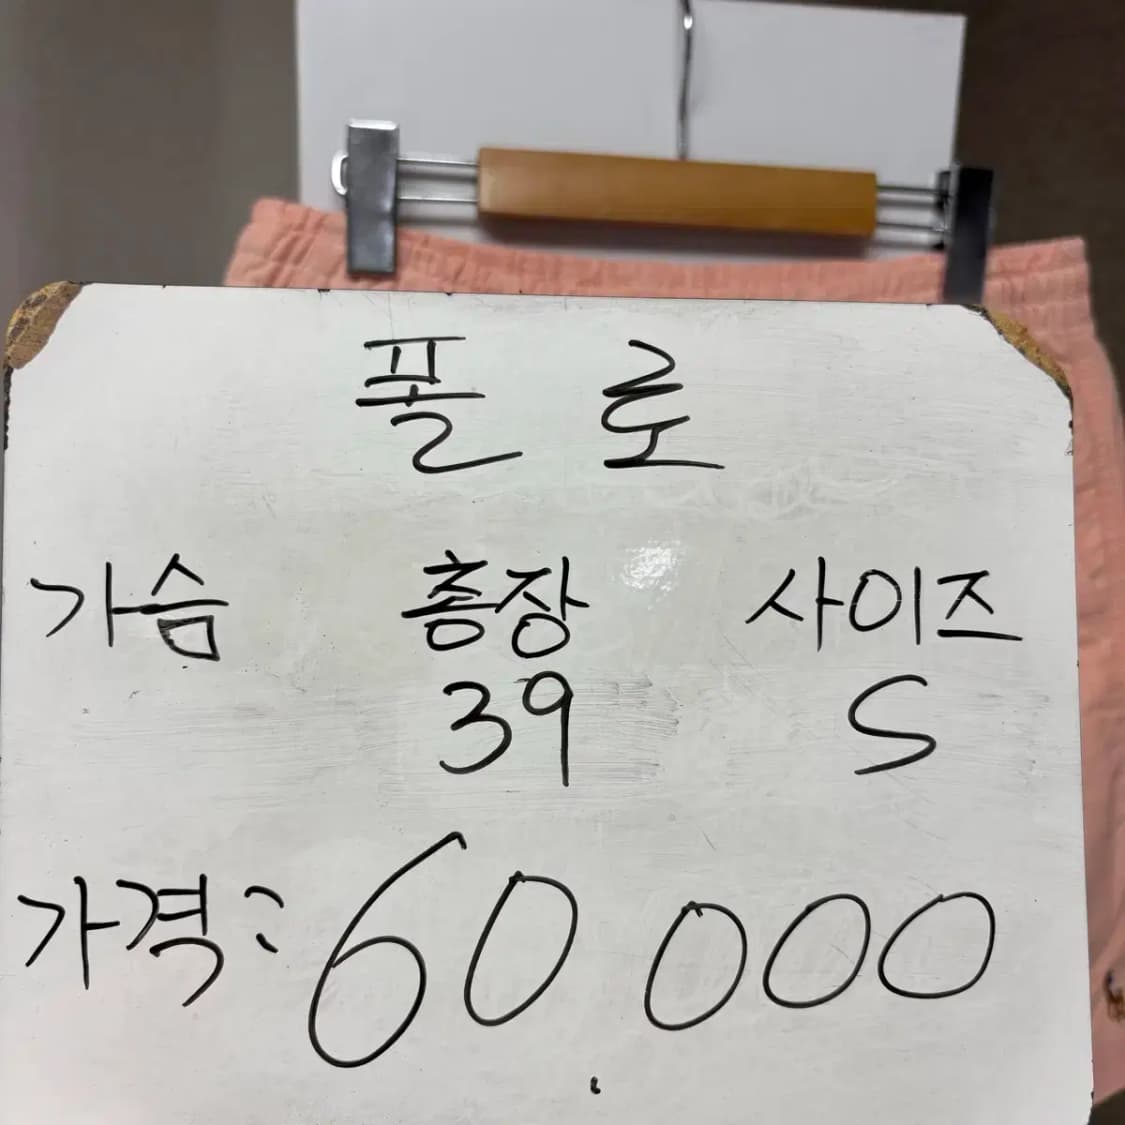 폴로
가슴 총장 사이즈
39 S
가격: 60.000